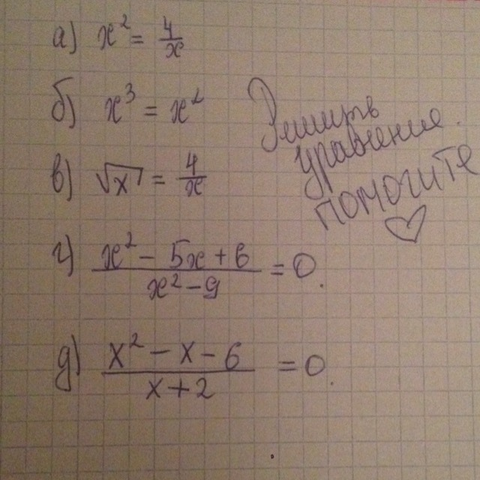 а) x² = 4/x
б) x³ = x²
в) √x = 4/x
г) x² - 5x + 6 / x² - 9 = 0.
д) x² - x - 6 / x + 2 = 0.
Решить
уравнение.
помогите
♡